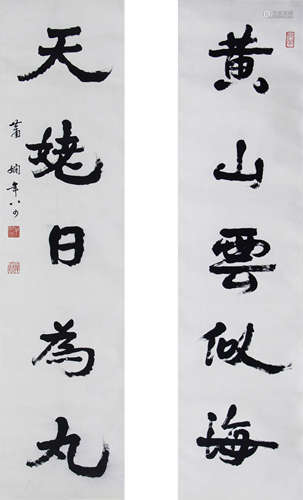 黄山雲似海
天姥日為丸
蕭嫻年八四